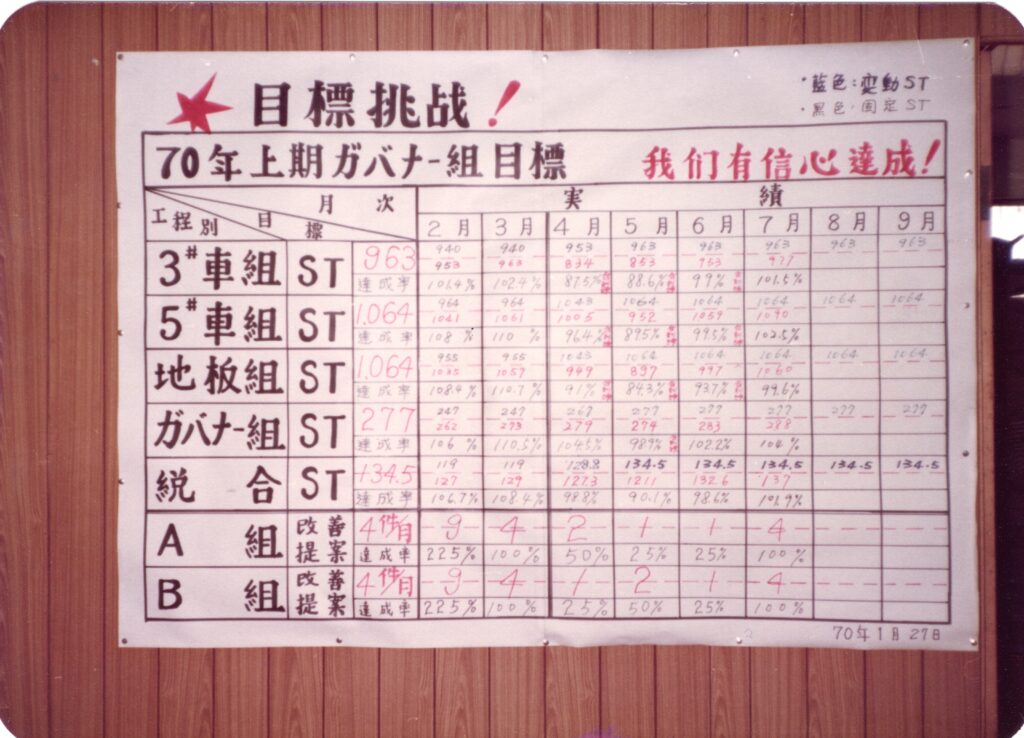 目標挑战!
・藍色:变動ST
・黑色:固定ST
70年上期ガバナー組目標 我们有信心達成!
工程別 目標 月次 実績
2月 3月 4月 5月 6月 7月 8月 9月
3#車組 ST 963 940 940 953 963 963 963 963 963
953 963 834 853 953 977
達成率 101.4% 102.4% 87.5% 88.6% 99% 101.5%
5#車組 ST 1.064 964 964 1043 1064 1064 1064 1064 1064
1041 1061 1005 952 1059 1090
達成率 108% 110% 96.4% 89.5% 99.5% 102.5%
地板組 ST 1.064 955 955 1043 1064 1064 1064 1064 1064
1035 1057 949 897 997 1060
達成率 108.4% 110.7% 91% 84.3% 93.7% 99.6%
ガバナー組 ST 277 247 247 267 277 277 277 277 277
262 273 279 274 283 288
達成率 106% 110.5% 104.5% 98.9% 102.2% 104%
総合 ST 134.5 119 119 128.8 134.5 134.5 134.5 134.5 134.5
127 129 127.3 121.1 132.6 137
達成率 106.7% 108.4% 98.8% 90.1% 98.6% 101.9%
A組 改善提案 4件/月 9 4 2 1 1 4
達成率 225% 100% 50% 25% 25% 100%
B組 改善提案 4件/月 9 4 1 2 1 4
達成率 225% 100% 25% 50% 25% 100%
70年1月27日